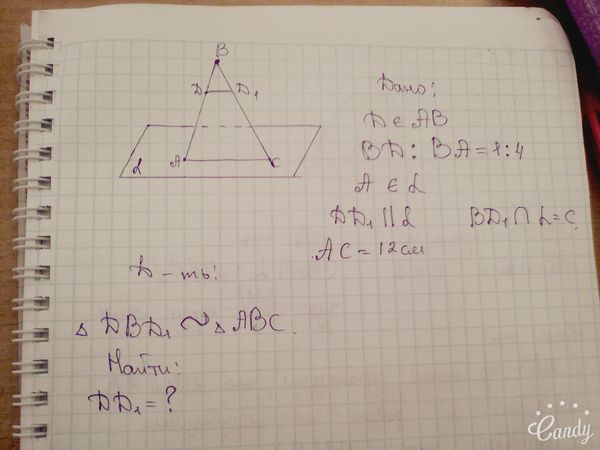 B
D D₁
A C
α
Дано:
D ∈ AB
BD : BA = 1:4
A ∈ α
DD₁ || α BD₁ ∩ α = C
AC = 12 см
Д-ть:
△ DBD₁ ~ △ ABC.
Найти:
DD₁ = ?
Candy